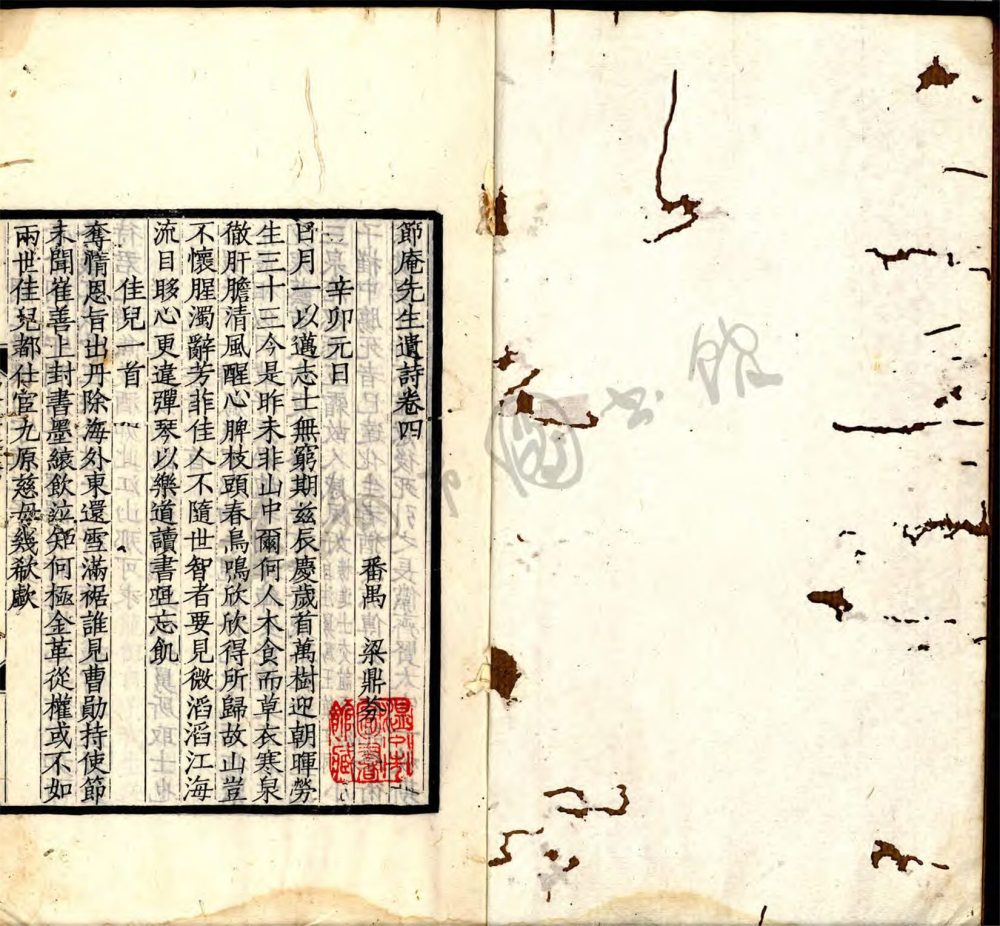 節庵先生遺詩卷四
番禺 梁鼎芬
辛卯元日
日月一以邁志士無窮期茲辰慶歲首萬樹迎朝暉勞
生三十三今是昨未非山中爾何人木食而草衣寒泉
徹肝膽清風醒心脾枝頭春鳥鳴欣欣得所歸故山豈
不懷腥濁辭芳菲佳人不隨世智者要見微滔滔江海
流目眵心更違彈琴以樂道讀書每忘飢
佳兒一首
奪情恩旨出丹除海外東還雪滿裾誰見曹勛持使節
未聞崔善上封書墨縗飲泣知何極金革從權或不如
兩世佳兒都仕宦九原慈母幾欷歔
溫州市
圖書
館藏